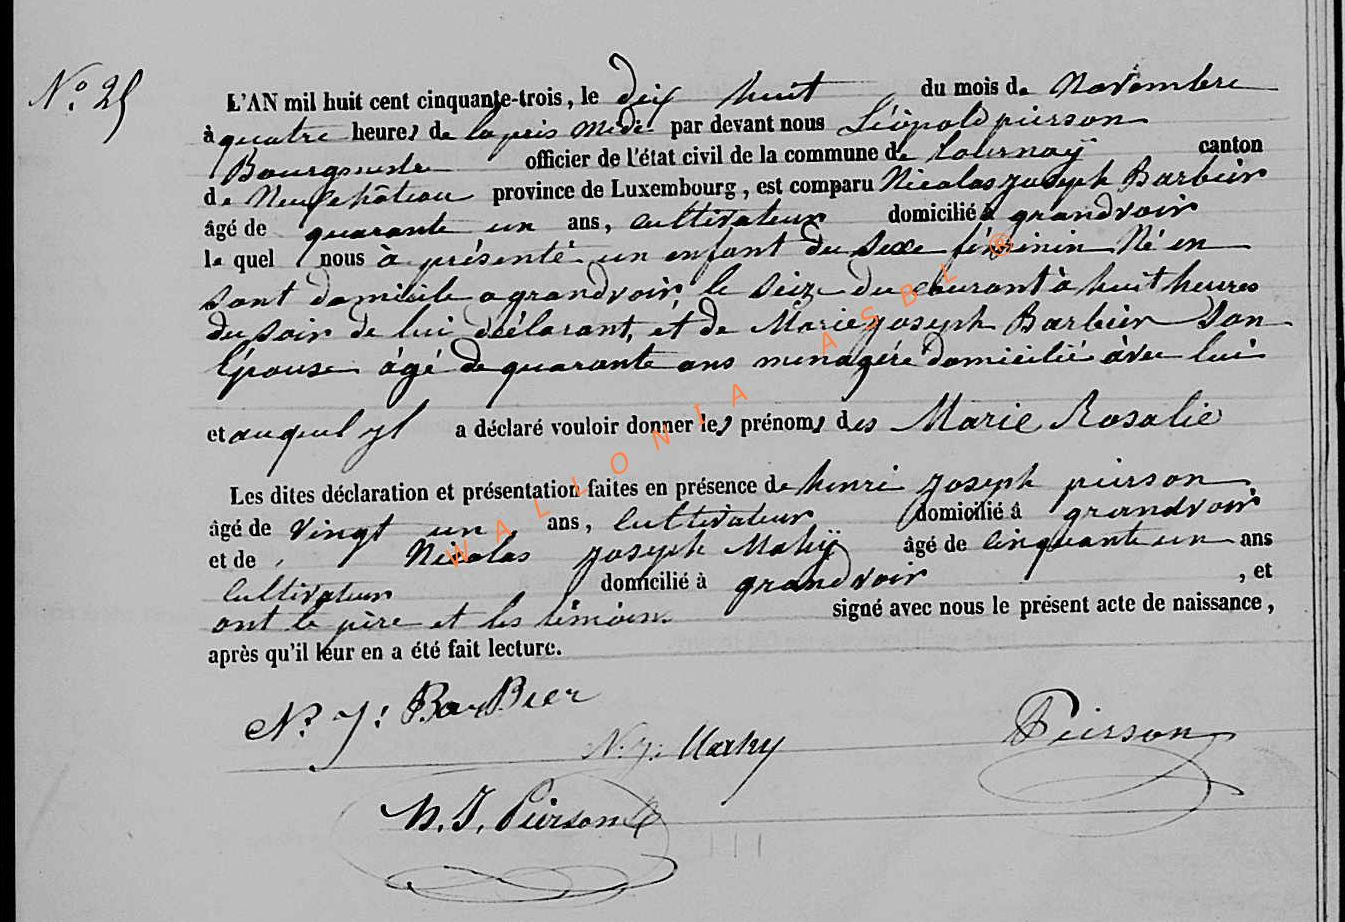 N.º 25
L'AN mil huit cent cinquante-trois, le dix huit du mois de Novembre
à quatre heures de lapris midi par devant nous Léopold pierson
Bourgmestre officier de l'état civil de la commune de tournaÿ canton
de Neufchâteau province de Luxembourg, est comparu Nicolas joseph Barbier
âgé de quarante un ans, cultivateur domicilié à grandvoir
le quel nous à présenté un enfant du sexe féminin Né en
sont domicile a grandvoir le seize du courant à huit heures
du soir de lui déclarant, et de Marie joseph Barbier son
épouse âgé de quarante ans menagére domicilié àvec lui
et auquel yl a déclaré vouloir donner les prénoms des Marie Rosalie
Les dites déclaration et présentation faites en présence de henri joseph pierson
âgé de vingt un ans, cultivateur domicilié à grandvoir
et de Nicolas joseph Mahÿ âgé de cinquante un ans
cultivateur domicilié à grandvoir , et
ont le père et les témoins signé avec nous le présent acte de naissance,
après qu'il leur en a été fait lecture.
N. J. BarBier
N. J. Mahy
Pierson
H. J. Pierson
WALLONIA ASBL ®